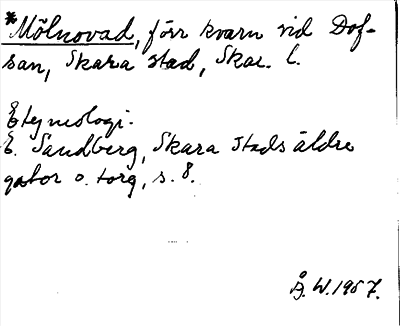 *Mölnovad, förr kvarn vid Dof-
san, Skara stad, Skar. l.
Etymologi:
E. Sandberg, Skara stads äldre
gator o. torg, s. 8.
Å. W. 1957.